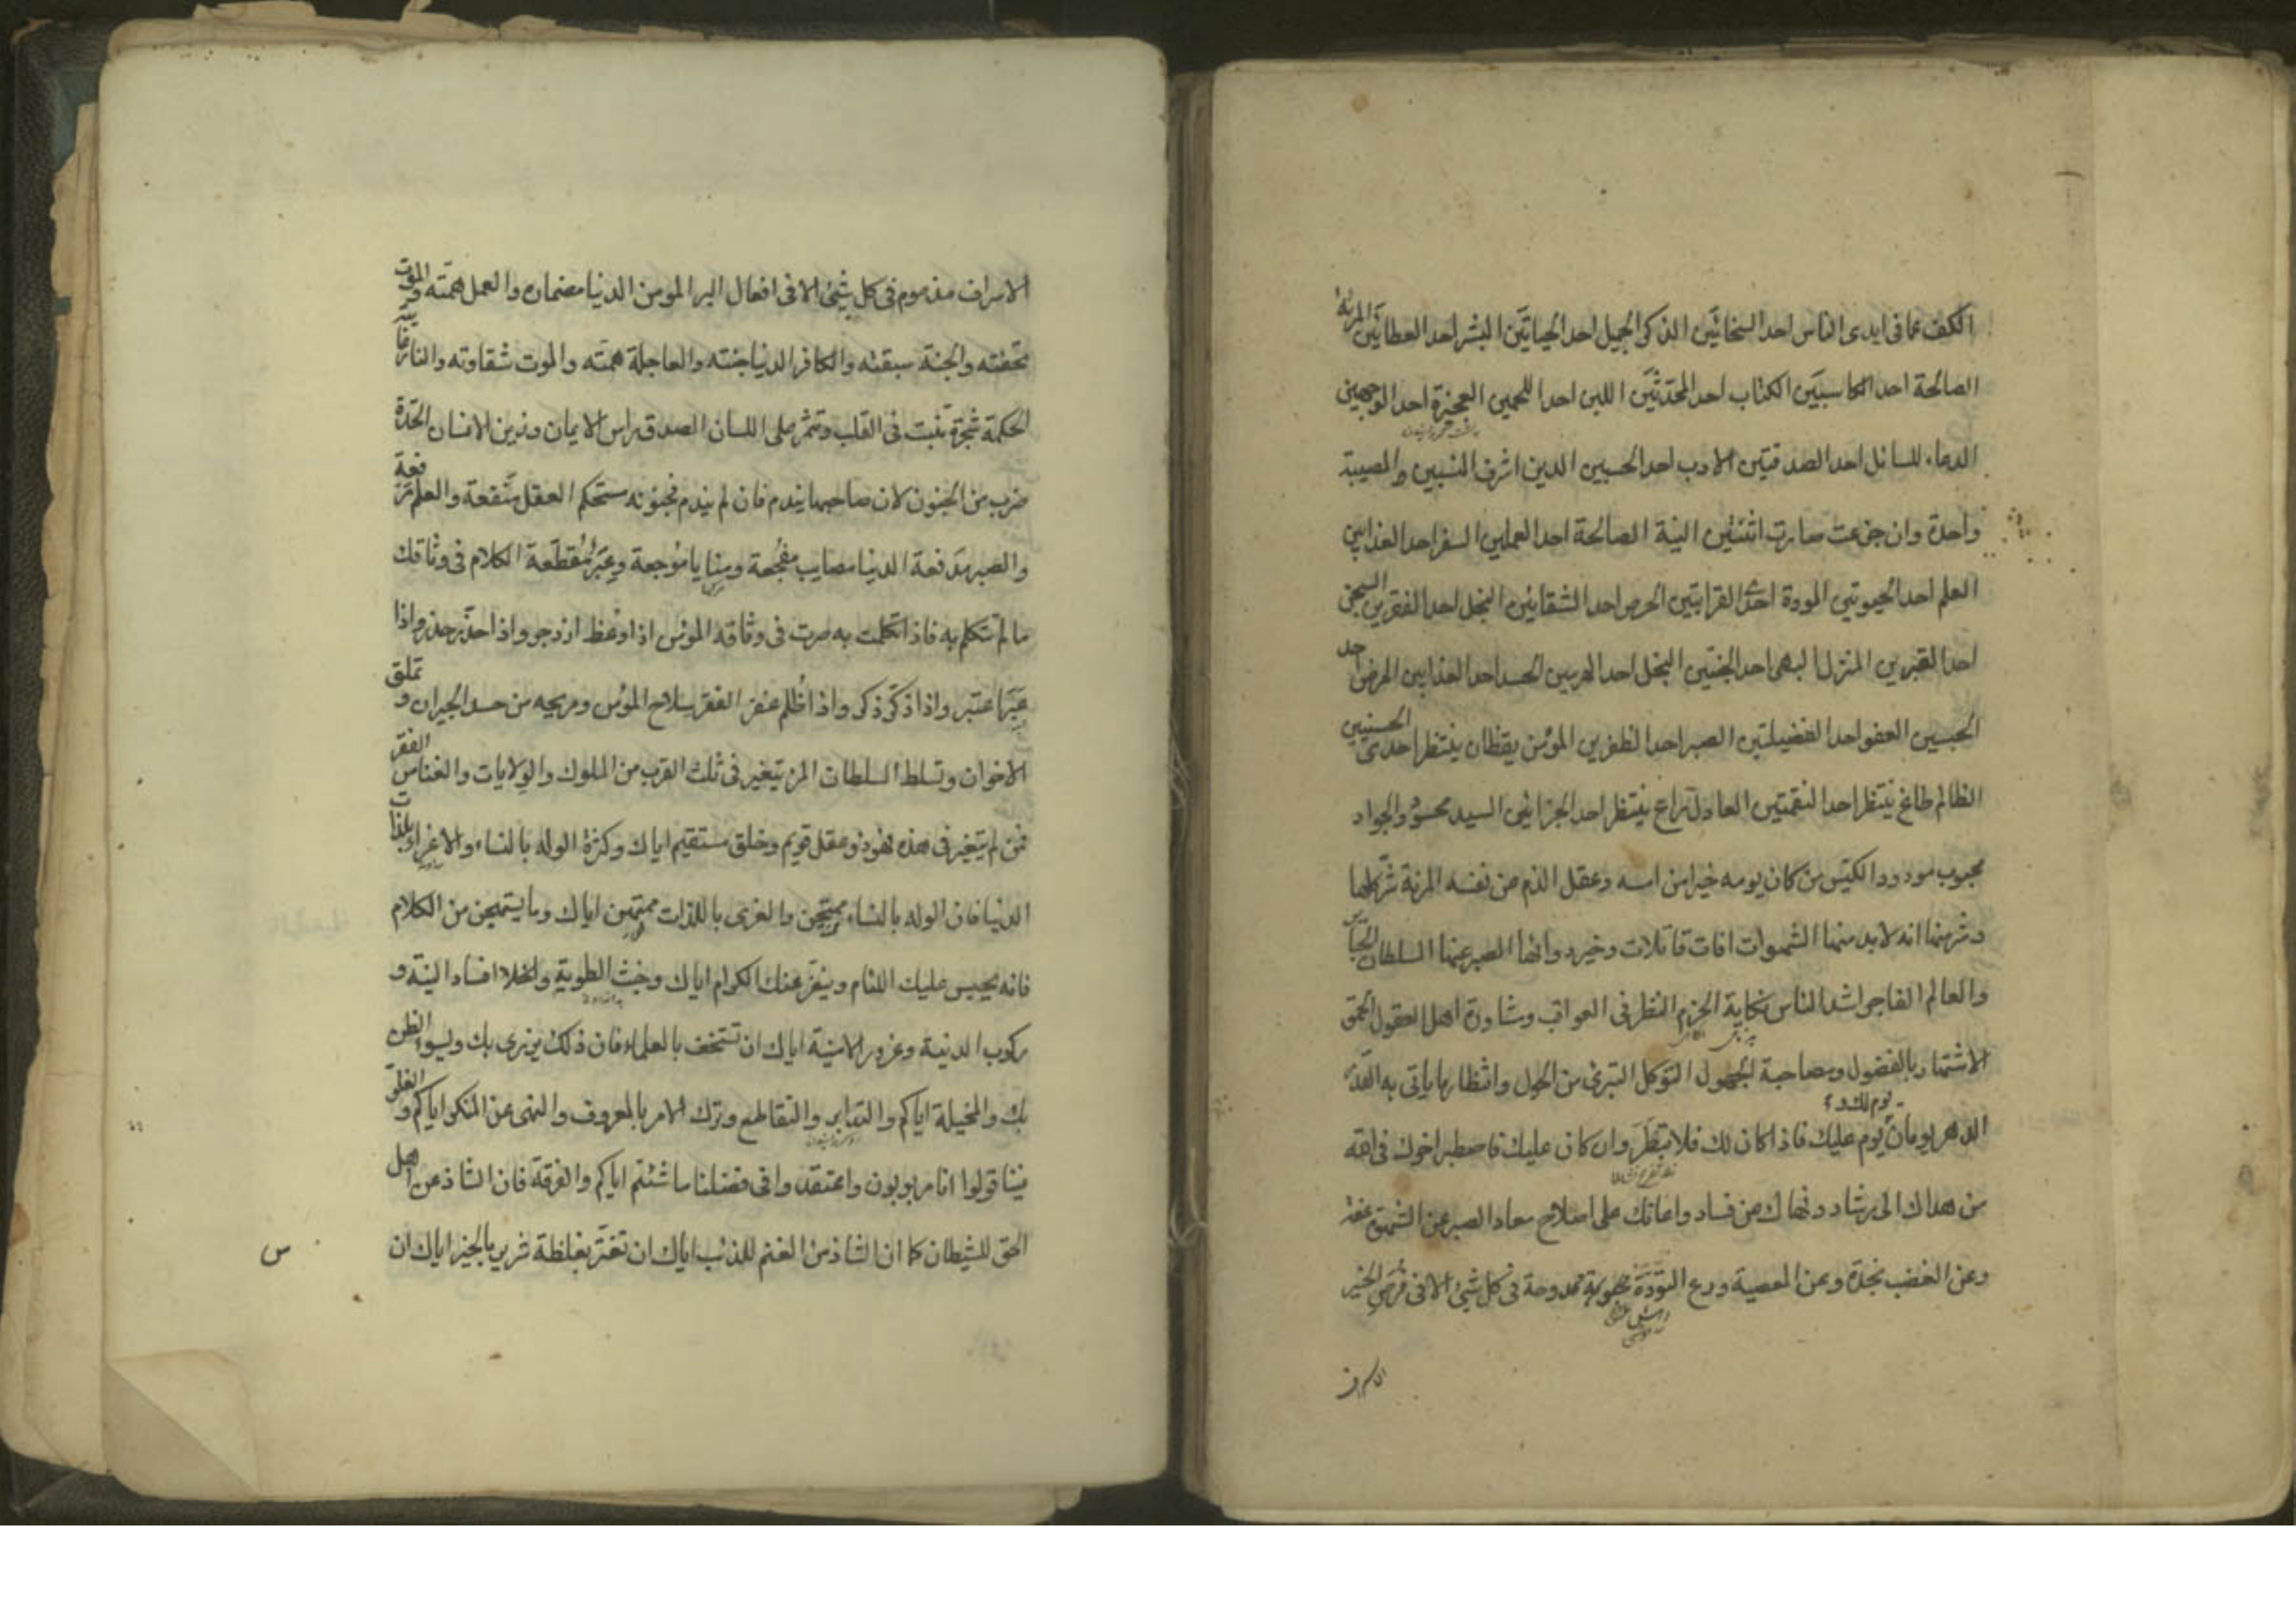 الكف عما فى ايدى الناس احد السخائين الذكر الجميل احد الحياتين البشر احد العطائين المراة
الصالحة احد الكاسبين الكتاب احد المحدثين اللبن احد اللحمين العجيزة احد الوجهين
الدعاء للسائل احد الصدقتين الادب احد الحسبين الدين اشرف النسبين والمصيبة
واحدة وان جزعت صارت اثنتين النية الصالحة احد العملين السفر احد العذابين
العلم احد الحيوتين المودة احدى القرابتين الحرص احد الشقائين البخل احد الفقرين السجن
احد القبرين المنزل البهى احد الجنتين البخل احد الحسد احد العذابين المرض احد
الحبسين العفو احد الفضيلتين الصبر احد الظفرين المؤمن يقظان ينتظر احدى الحسنيين
الظالم طاغ ينتظر احد النقمتين العادل راع ينتظر احد الجزائين السيد محسود والجواد
محبوب مودود الكيس من كان يومه خيرا من امسه وعقل الذم عن نفسه المراة شر كلها
وشر منها انه لا بد منها الشهوات افات قاتلات وخير دوائها الصبر عنها السلطان الجائر
والعالم الفاجر اشد الناس نكاية الحزم النظر فى العواقب ومشاورة اهل العقول الحمق
الاشتهار بالفضول ومصاحبة الجهول التوكل التبرى من الحول وانتظار ما ياتى به القدر
يوم لك و
الدهر يومان يوم عليك فاذا كان لك فلا تبطر وان كان عليك فاصطبر اخوك فى الله
من هداك الى رشاد ونهاك عن فساد واعانك على اصلاح معاد الصبر عن الشهوة عفة
وعن الغضب نجدة وعن المعصية ورع التؤدة ممدوحة فى كل شئ الا فى فرص الخير
الاسراف
الاسراف مذموم فى كل شئ الا فى افعال البر المومن الدنيا مضماره والعمل همته والموت
تحفته والجنة سبقته والكافر الدنيا جنته والعاجلة همته والموت شقاوته والنار غايته
الحكمة شجرة تنبت فى القلب وتثمر على اللسان الصدق راس الايمان وزين الانسان الحدة
ضرب من الجنون لان صاحبها يندم فان لم يندم فجنونه مستحكم العقل منفعة والعلم مرفعة
والصبر مدفعة الدنيا مصايب مفجعة ومنايا موجعة وعبر مقطعة الكلام فى وثاقك
ما لم تتكلم به فاذا تكلمت به صرت فى وثاقه المؤمن اذا وعظ ازدجر واذا حذر حذر واذا
عبر اعتبر واذا ذكر ذكر واذا ظلم غفر الفقر صلاح المؤمن ومريحه من حسد الجيران وتملق
الاخوان وتسلط السلطان المرء يتغير فى ثلث القرب من الملوك والولايات والغنا من الفقر
فمن لم يتغير فى هذه فهو ذو عقل قويم وخلق مستقيم اياك وكثرة الوله بالنساء والاغراء بلذات
الدنيا فان الوله بالنساء ممتحن والغرى باللذات ممتهن اياك وما يستهجن من الكلام
فانه يحبس عليك اللئام وينفر عنك الكرام اياك وخبث الطوية وافساد النية و
ركوب الدنية وغرور الامنية اياك ان تستخف بالعلماء فان ذلك يزرى بك ويسوء الظن
بك والمخيلة اياكم والتدابر والتقاطع وترك الامر بالمعروف والنهى عن المنكر اياكم والغلو
فينا قولوا انا مربوبون واعتقدوا فى فضلنا ما شئتم اياكم والفرقة فان الشاذ عن اهل
الحق للشيطان كما ان الشاذ من الغنم للذئب اياك ان تغتر بغلطة شرير بالخير اياك ان